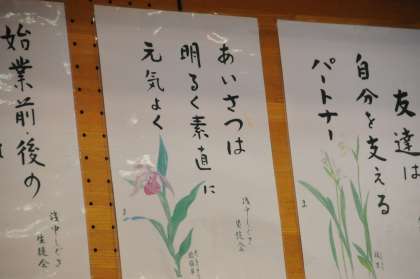 友達は
自分を支える
パートナー
あいさつは
明るく素直に
元気よく
浅中しぐさ
生徒会
始業前後の
浅中しぐさ
生徒会